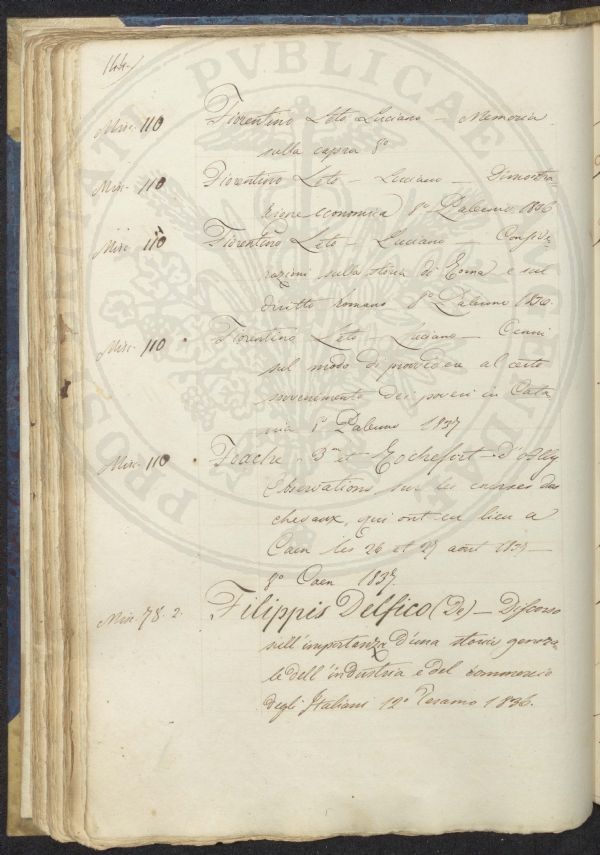 144
Misc. 110 Fiorentino Leto Luciano – Memoria
sulla capra 8°
Misc. 110 Fiorentino Leto – Luciano – Dimostra-
zione economica 8° Palermo 1836
Misc. 110 Fiorentino Leto – Luciano –
razioni sulla storia di Roma e sul
diritto romano 8° Palermo
Misc. 110 Fiorentino Leto – Luciano – Cenni
sul modo di provvedere al certo
sovvenimento dei poveri in Cata
nia 8° Palermo 1837
Misc. 110 et Rochefort d'Ally
Observations sur les courses des
chevaux, qui ont eu lieu a
Caen les 26 et 27 aout 1837 –
8° Caen 1837.
Misc. 78. 2. Filippis Delfico (De) – Discorso
sull'importanza d'una storia genera-
le dell'industria e del commercio
degli Italiani 12° Teramo 1836.
PROSPERITATI PVBLICAE AVGENDAE